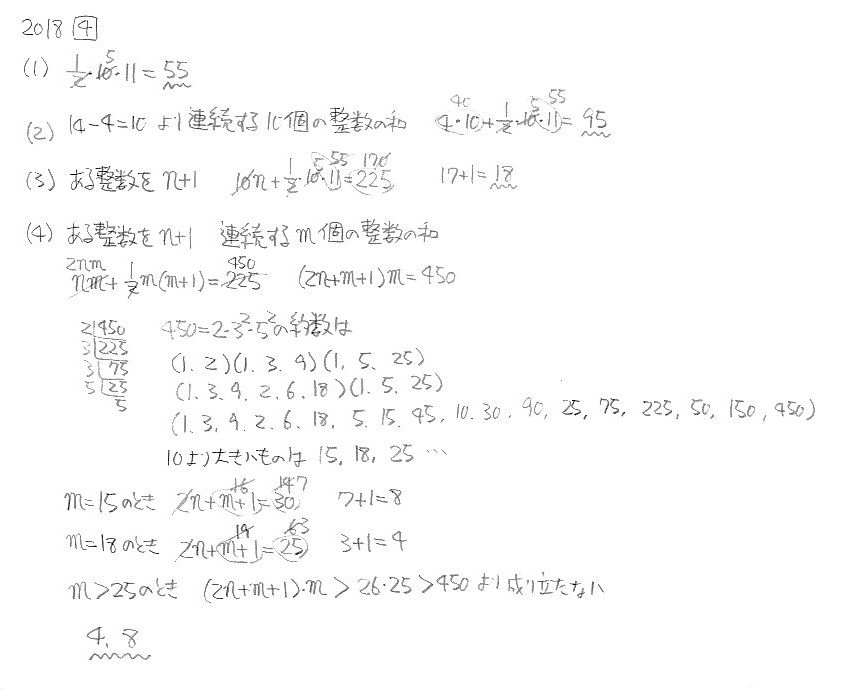 2018 4
(1) 1/2・10・11=55 5
(2) 14-4=10 より連続する10個の整数の和 4・10+1/2・10・11=95 40 5 55
(3) ある整数をn+1 10n+1/2・10・11=225 5 55 170 17+1=18
(4) ある整数をn+1 連続するm個の整数の和
2nm 450
nm+1/2m(m+1)=225 (2n+m+1)m=450
2|450 450=2・3²・5²の約数は
3|225
3|75 (1.2)(1.3.9)(1.5.25)
5|25 (1.3.9.2.6.18)(1.5.25)
5
(1.3,9.2.6.18, 5.15.45, 10.30, 90, 25, 75, 225, 50, 150, 450)
10より大きいものは 15, 18, 25 …
m=15のとき 2n+m+1=30 16 14 7 7+1=8
m=18のとき 2n+m+1=25 19 6 3 3+1=4
m>25のとき (2n+m+1)・m > 26・25 > 450 より成り立たない
4, 8